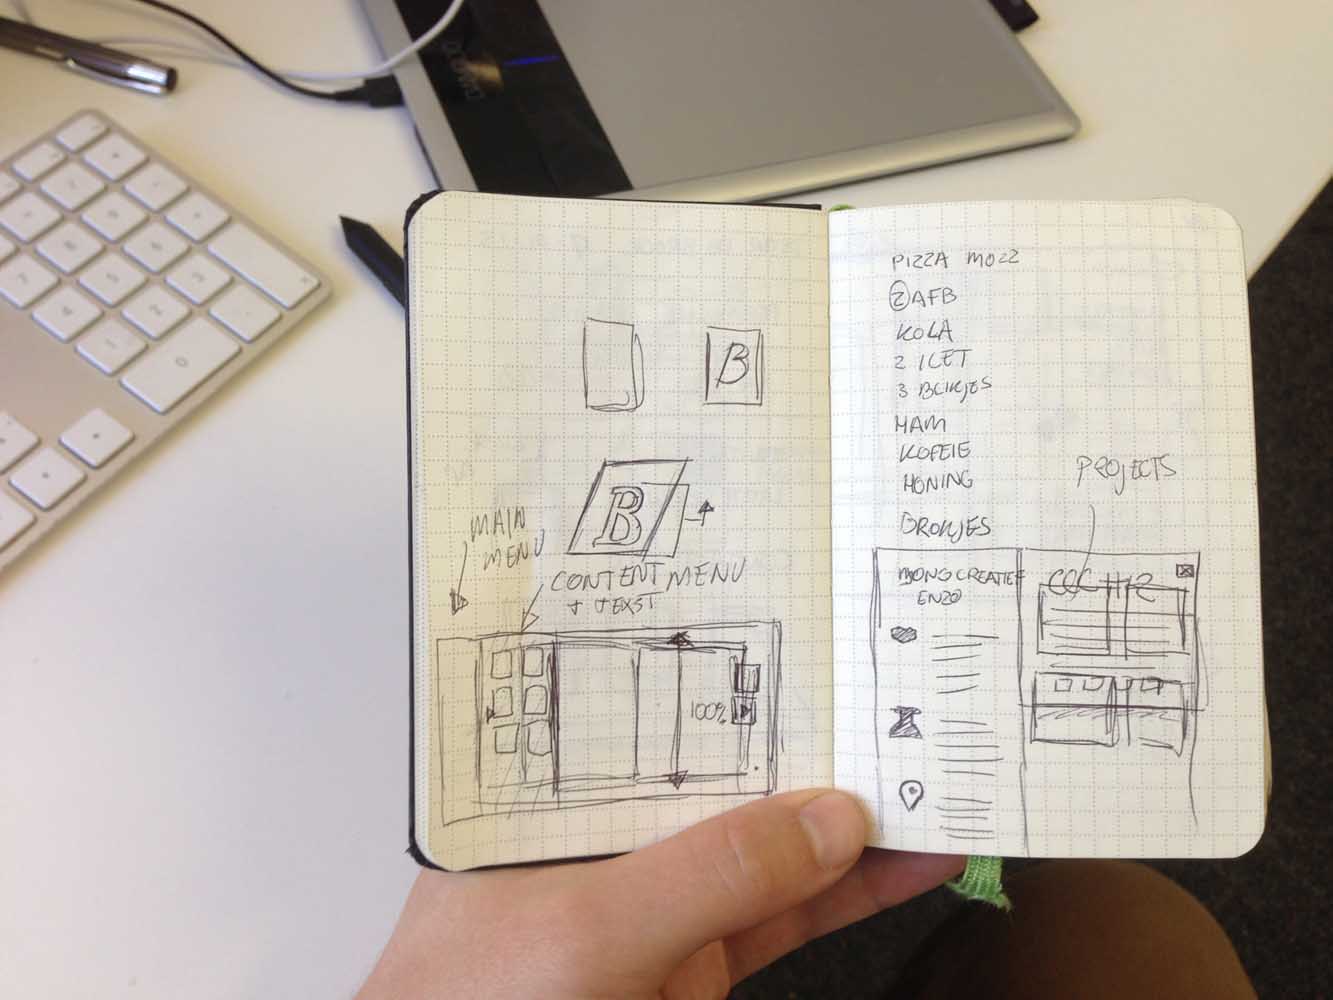 B
B
MAIN
MENU
CONTENT MENU
+ TEXST
100%
PIZZA MOZZ
2 AFB
KOLA
2 ICET
3 BLIKJES
HAM
KOFFIE
HONING
BROKJES
PROJECTS
ENZO
0